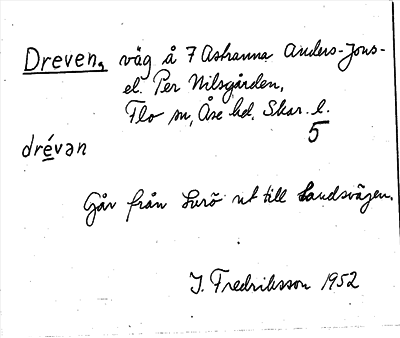 Dreven, väg å 7 Astranna Anders-Jons-
el. Per Nilsgården,
Flo sn, Åse hd, Skar. l.
5
drévan
Går från Lurö ut till Landsvägen.
J. Fredriksson 1952